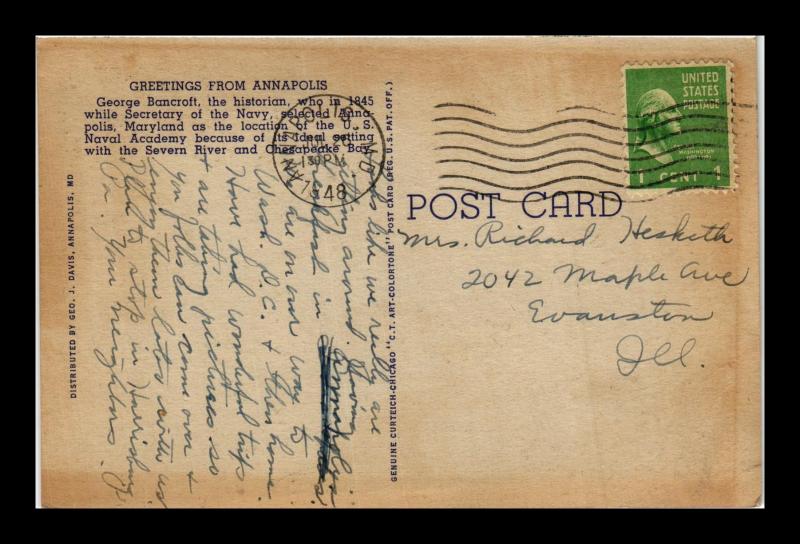 GREETINGS FROM ANNAPOLIS
George Bancroft, the historian, who in 1845
while Secretary of the Navy, selected Anna-
polis, Maryland as the location of the U. S.
Naval Academy because of its ideal setting
with the Severn River and Chesapeake Bay.
DISTRIBUTED BY GEO. J. DAVIS, ANNAPOLIS, MD
Looks like we really are
getting around. Having
breakfast in Annapolis.
We are on our way to
Wash. D.C. & then home.
Have had wonderful trip
& are taking pictures so
you folks can come over &
enjoy them later with us.
Plan to stop in Harrisburg
Pa. Your neighbors
GENUINE CURTEICH-CHICAGO "C.T. ART-COLORTONE" POST CARD (REG. U.S. PAT. OFF.)
ANNAPOLIS, MD.
130 PM
1948
UNITED
STATES
POSTAGE
WASHINGTON
1 CENT 1
POST CARD
Mrs. Richard Hesketh
2042 Maple Ave
Evanston
Ill.